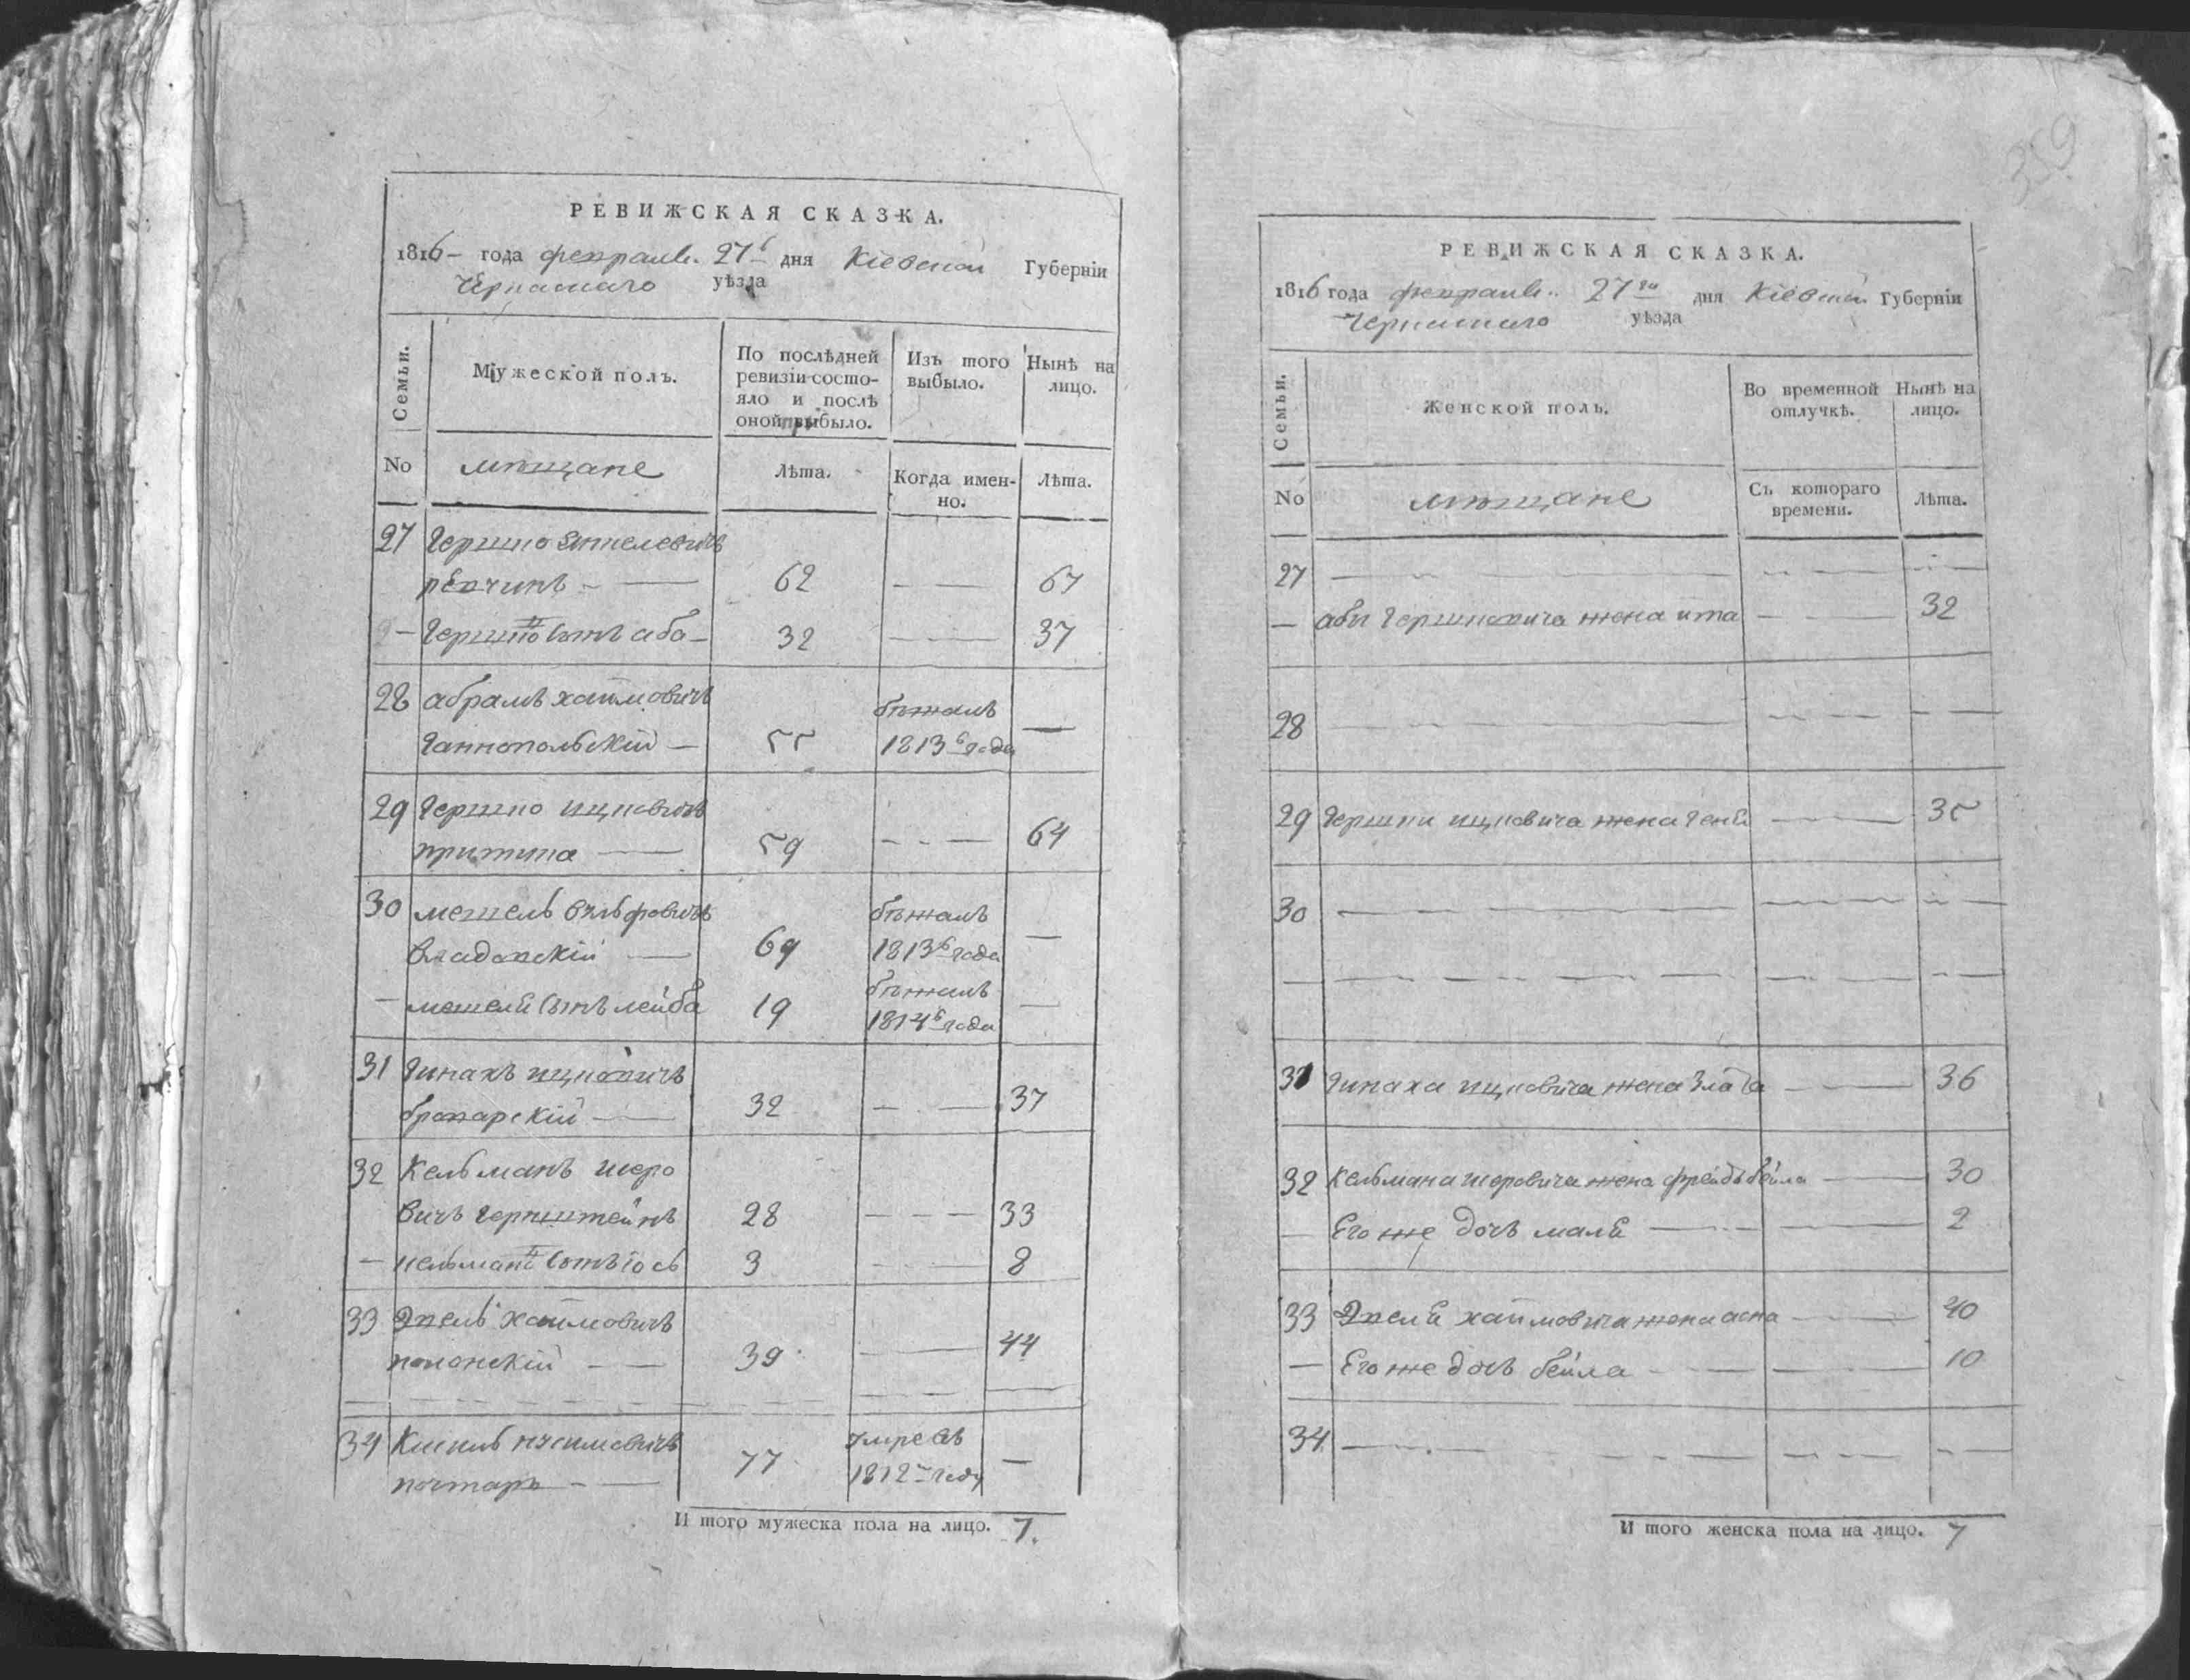 359
РЕВИЖСКАЯ СКАЗКА.
1816 года февраля 27 дня Кіевской Губерніи
Черкаскаго уѣзда
Семьи.
Мужеской полъ.
По послѣдней ревизіи состо-
яло и послѣ
оной прибыло.
Изъ того
выбыло.
Нынѣ на
лицо.
No
мѣщане
Лѣта.
Когда имен-
но.
Лѣта.
27 Гершко
62 — — 67
— Гершка сынъ аба — 32 — — 37
28 абрамъ хаимовичъ бѣжалъ
Ганнопольскій — 55 1813 года —
29 Гершко ицковичъ
59 — — 64
30 мошель вульфовичъ бѣжалъ
69 1813 года —
бѣжалъ
— мошеля сынъ лейба 19 1814 года —
31 Пинахъ ицковичъ
32 — — 37
32 Кельманъ шеро
вичъ 28 — — 33
— кельмана сынъ іось 3 — — 8
33 хаимовичъ
полонскій — — 39 — — 44
34 умре въ
почтарь — — 77 1812 году —
И того мужеска пола на лицо. 7.
РЕВИЖСКАЯ СКАЗКА.
1816 года февраля 27 дня Кіевской Губерніи
Черкаскаго уѣзда
Семьи.
Женской полъ.
Во временной
отлучкѣ.
Нынѣ на
лицо.
No
мѣщане
Съ котораго
времени.
Лѣта.
27 — — —
— абы Гершковича жена ита — — 32
28 — — —
29 Гершки ицковича жена Геня — — 35
30 — — —
— — — —
31 Пинаха ицковича жена Злата — — 36
32 Кельмана шеровича жена фрейдъ бейла — — 30
— Его же дочь маля — — 2
33 хаимовича жена — — 40
— Его же дочь бейла — — 10
34 — — —
И того женска пола на лицо. 7